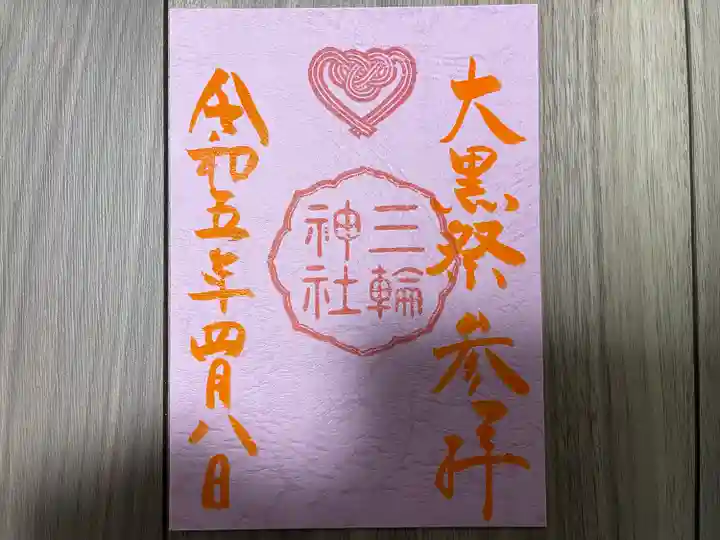 大黒祭 参拝
三輪
神社
令和五年四月八日